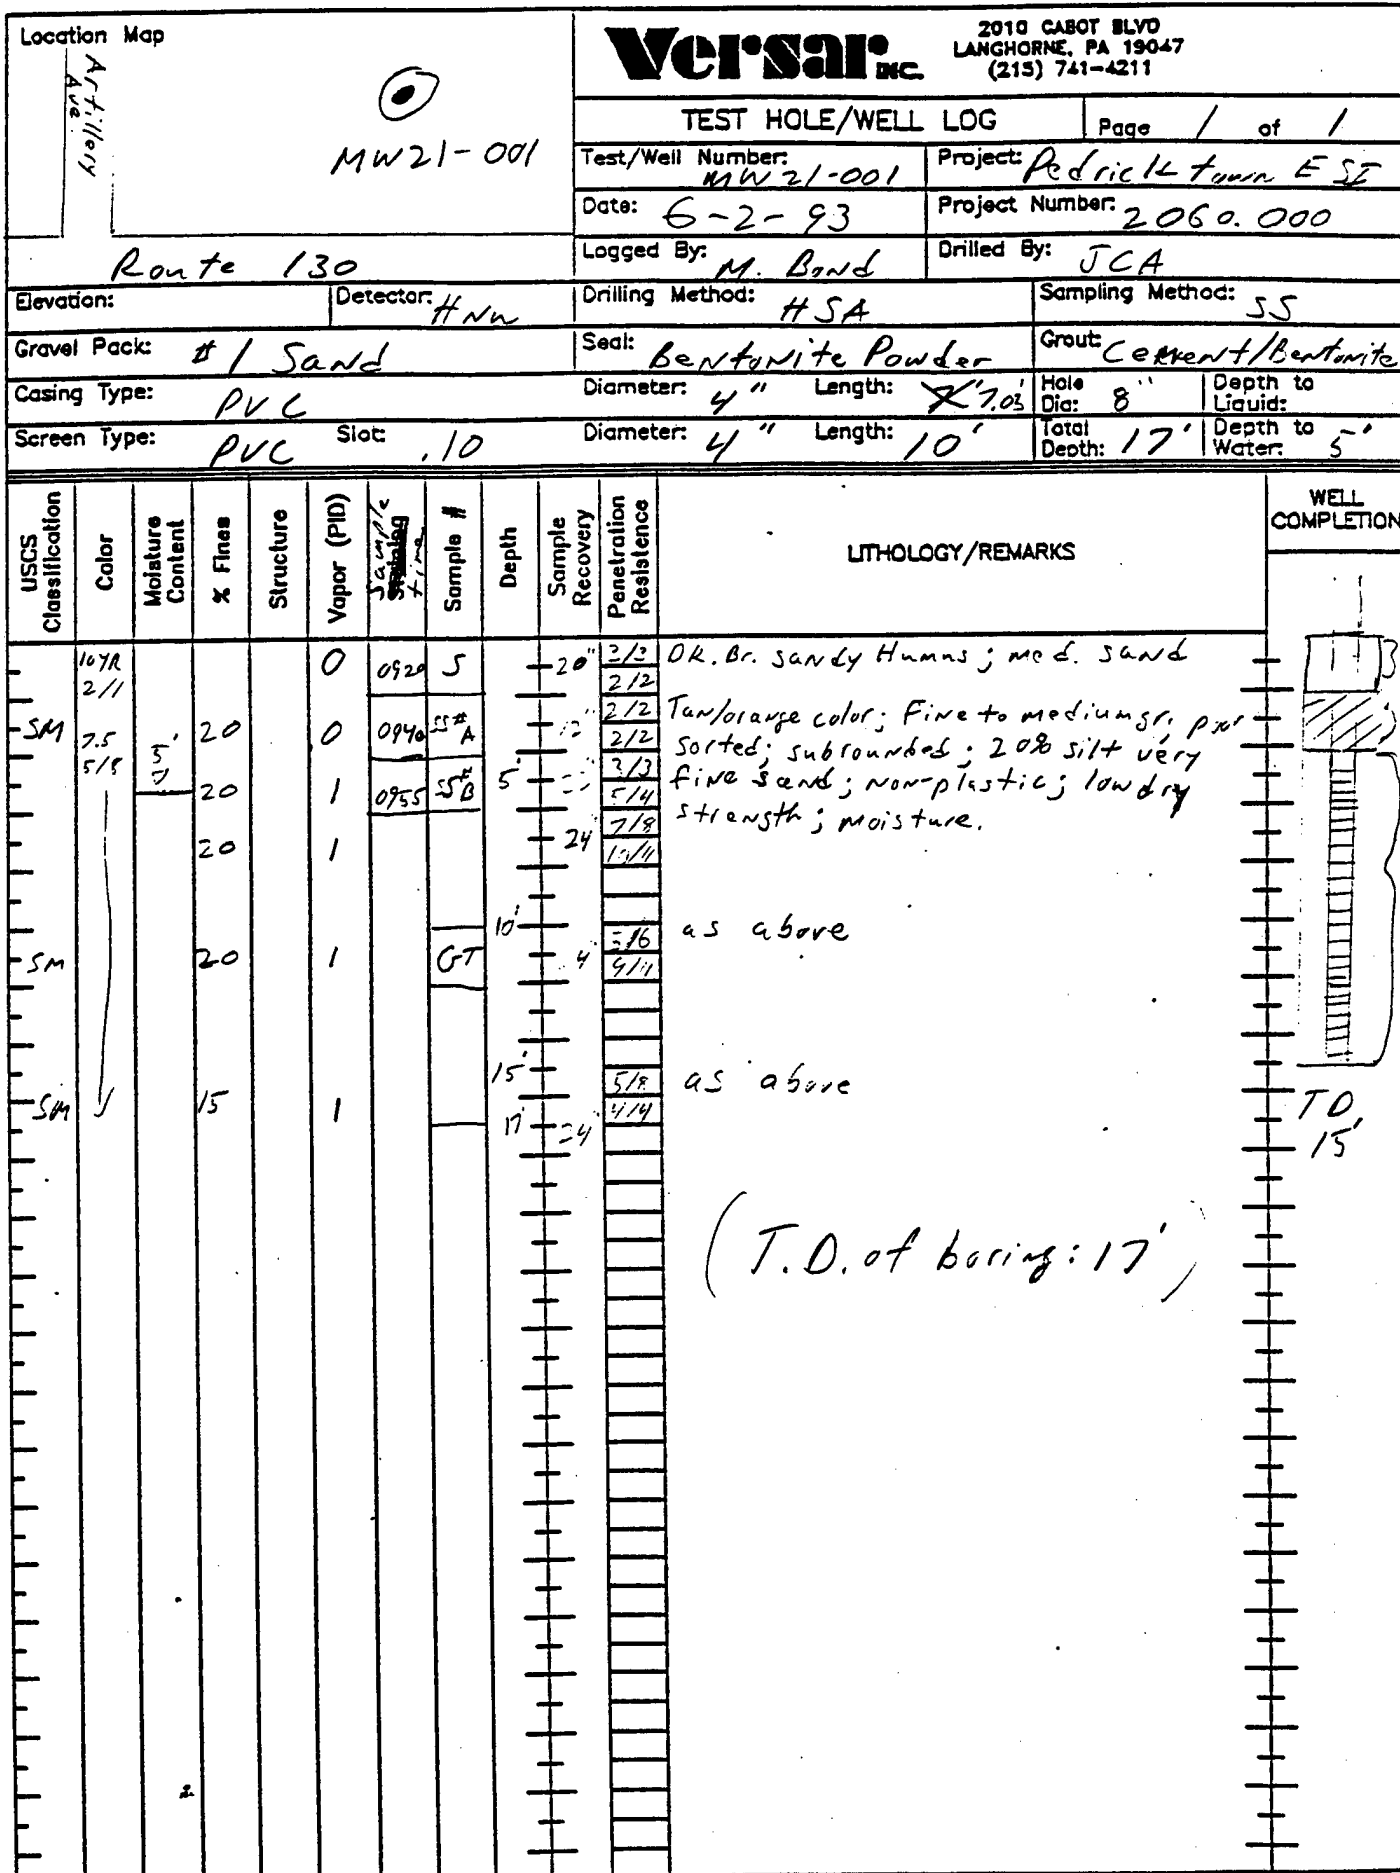 Location Map
Artillery
Ave.
MW21-001
Route 130
Versar INC.
2010 CABOT BLVD
LANGHORNE, PA 19047
(215) 741-4211
TEST HOLE/WELL LOG
Page 1 of 1
Test/Well Number: MW21-001
Project: Pedricktown ESI
Date: 6-2-93
Project Number: 2060.000
Logged By: M. Bond
Drilled By: JCA
Elevation:
Detector: HNu
Drilling Method: HSA
Sampling Method: SS
Gravel Pack: #1 Sand
Seal: Bentonite Powder
Grout: Cement/Bentonite
Casing Type: PVC
Diameter: 4" Length: 7.03'
Hole Dia: 8"
Depth to Liquid:
Screen Type: PVC Slot: .10
Diameter: 4" Length: 10'
Total Depth: 17'
Depth to Water: 5'
USCS Classification
Color
Moisture Content
% Fines
Structure
Vapor (PID)
Sample time
Sample #
Depth
Sample Recovery
Penetration Resistence
LITHOLOGY/REMARKS
WELL COMPLETION
10YR 2/1 0 0920 S 20" DK. Br. Sandy Humus; med. sand
2/2
SM 7.5 20 0 0940 SS# A 2/2 Tan/orange color; Fine to medium gr. poor
5/8 5' 2/2 sorted; subrounded; 20% silt very
20 1 0955 SS# B 5' 5/4 fine sand; non-plastic; low dry
strength; moisture.
20 1 24 7/8
10/11
10' as above
SM 20 1 GT 4 9/11
15' 5/8 as above
SM 15 1 17' 24 4/4
TD
15'
(T.D. of boring: 17')